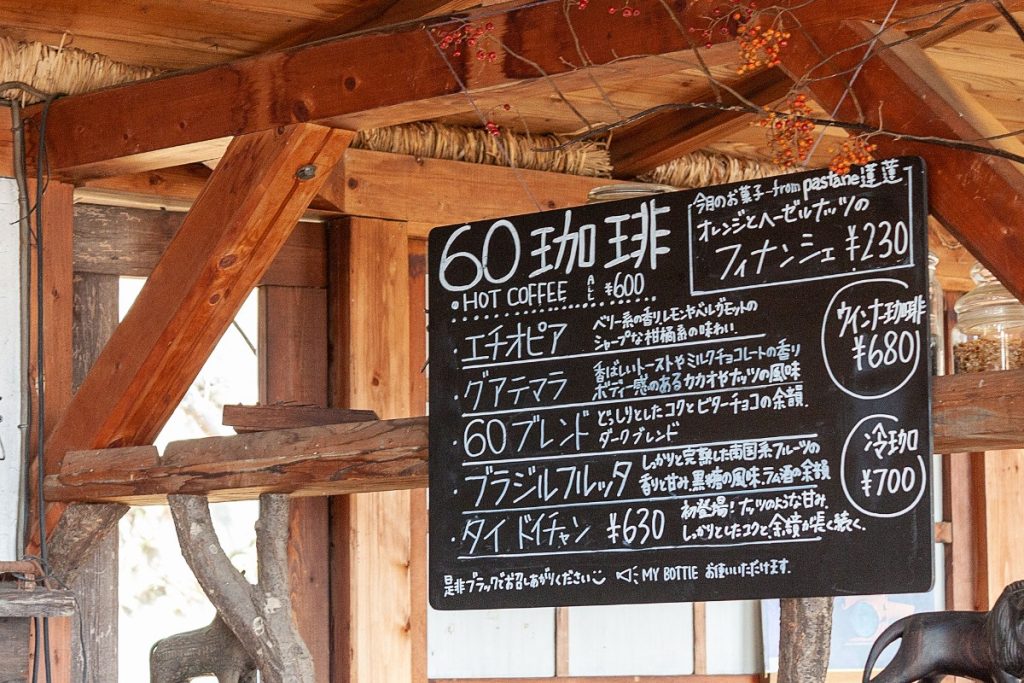 60珈琲
・HOT COFFEE ALL ¥600
今月のお菓子 from pastane蓮蓮
オレンジとヘーゼルナッツの
フィナンシェ ¥230
・エチオピア
ベリー系の香り、レモンやベルガモットの
シャープな柑橘系の味わい
・グアテマラ
香ばしいトーストやミルクチョコレートの香り
ボディー感のあるカカオやナッツの風味
・60ブレンド
どっしりとしたコクとビターチョコの余韻
ダークブレンド
・ブラジルフルッタ
しっかりと完熟した南国系フルーツの
香りと甘み、黒糖の風味、ラム酒の余韻
・タイ ドイチャン ¥630
初登場!ナッツのような甘み
しっかりとしたコクと、余韻が長く続く、
ウインナー珈琲
¥680
冷珈
¥700
是非ブラックでお召しあがりください
MY BOTTLE お使いいただけます.